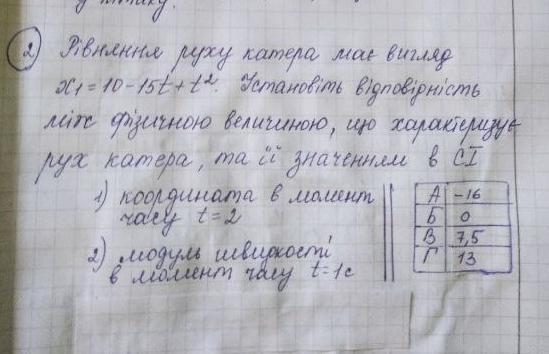 у літаку.
2 Рівняння руху катера має вигляд
x1 = 10 - 15t + t². Установіть відповідність
між фізичною величиною, що характеризує
рух катера, та її значенням в СІ
1) координата в момент
часу t = 2
2) модуль швидкості
в момент часу t = 1с
А -16
Б 0
В 7,5
Г 13